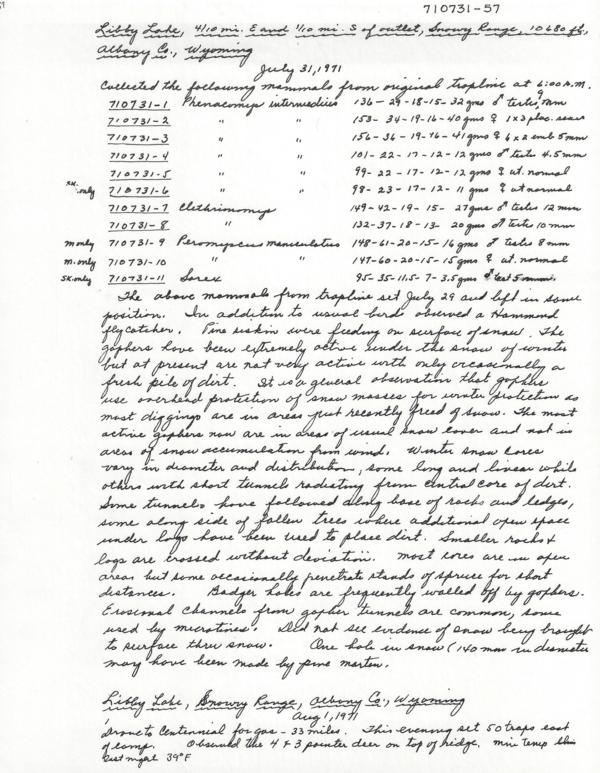 710731-57
Libby Lake, 4/10 mi. E and 1/10 mi. S of outlet, Snowy Range, 10680 ft,
Albany Co., Wyoming
July 31, 1971
Collected the following mammals from original trapline at 6:00 A.M.
710731-1 Phenacomys intermedius 136-29-18-15-32 gms ♂ testes 9 mm
710731-2 " " 153-34-19-16-40 gms ♀ 1x3 plac. scars
710731-3 " " 156-36-19-16-41 gms ♀ 6x2 emb 5mm
710731-4 " " 101-22-17-12-12 gms ♂ testes 4.5mm
710731-5 " " 99-22-17-12-12 gms ♀ ut. normal
sk. only 710731-6 " " 98-23-17-12-11 gms ♀ ut normal
710731-7 Clethrionomys 149-42-19-15-27 gms ♂ testes 12 mm
710731-8 " 132-37-18-13-20 gms ♂ testes 10 mm
m only 710731-9 Peromyscus maniculatus 148-61-20-15-16 gms ♂ testes 8mm
m. only 710731-10 " " 147-60-20-15-15 gms ♀ ut. normal
SK. only 710731-11 Sorex 95-35-11.5-7-3.5 gms ♂ test 5 mm.
The above mammals from trapline set July 29 and left in same
position. In addition to usual birds observed a Hammond
flycatcher. Pine siskin were feeding on surface of snow. The
gophers have been extremely active under the snow of winter
but at present are not very active with only occasionally a
fresh pile of dirt. It is a general observation that gophers
use overhead protection of snow masses for winter protection as
most diggings are in areas just recently freed of snow. The most
active gophers now are in areas of usual snow cover and not in
areas of snow accumulation from wind. Winter snow cores
vary in diameter and distribution, some long and linear while
others with short tunnels radiating from central core of dirt.
Some tunnels have followed along base of rocks and ledges,
some along side of fallen trees where additional open space
under logs have been used to place dirt. Smaller rocks +
logs are crossed without deviation. Most cores are in open
areas but some occasionally penetrate stands of spruce for short
distances. Badger holes are frequently walled off by gophers.
Erosional channels from gopher tunnels are common, some
used by microtines. Did not see evidence of snow being brought
to surface thru snow. One hole in snow (140 mm in diameter
may have been made by pine marten.
Libby Lake, Snowy Range, Albany Co., Wyoming
Aug 1, 1971
Drove to Centennial for gas - 33 miles. This evening set 50 traps east
of camp. Observed the 4 + 3 pointer deer on top of ridge. min temp this
last night 39°F